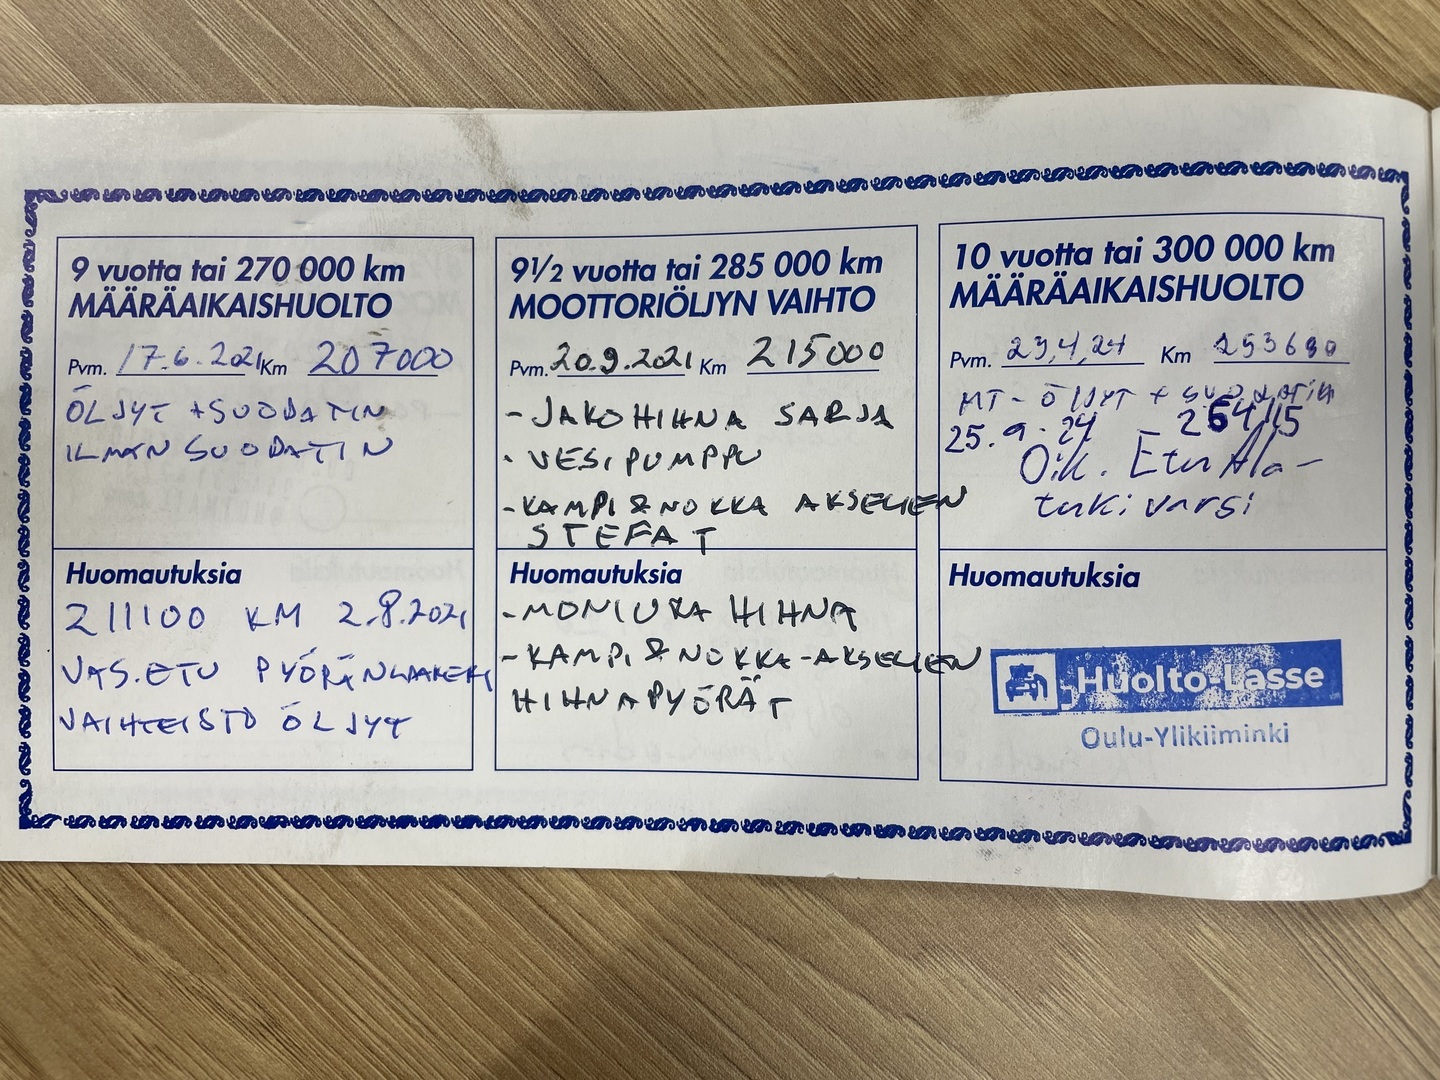 9 vuotta tai 270 000 km
MÄÄRÄAIKAISHUOLTO
Pvm. 17.6.2021 Km 207000
ÖLJYT + SUODATIN
ILMAN SUODATIN
Huomautuksia
211100 KM 2.8.2021
VAS. ETU PYÖRÄNLAAKERI
VAIHTEISTO ÖLJYT
9½ vuotta tai 285 000 km
MOOTTORIÖLJYN VAIHTO
Pvm. 20.9.2021 Km 215000
- JAKOHIHNA SARJA
- VESIPUMPPU
- KAMPI & NOKKA AKSELIEN
STEFAT
Huomautuksia
- MONIURA HIHNA
- KAMPI & NOKKA-AKSELIEN
HIHNAPYÖRÄT
10 vuotta tai 300 000 km
MÄÄRÄAIKAISHUOLTO
Pvm. 23,4,24 Km 253680
MT-ÖLJYT + SUODATIN
25.9.24 - 264115
Oik. Etu Ala-
tukivarsi
Huomautuksia
Huolto-Lasse
Oulu-Ylikiiminki